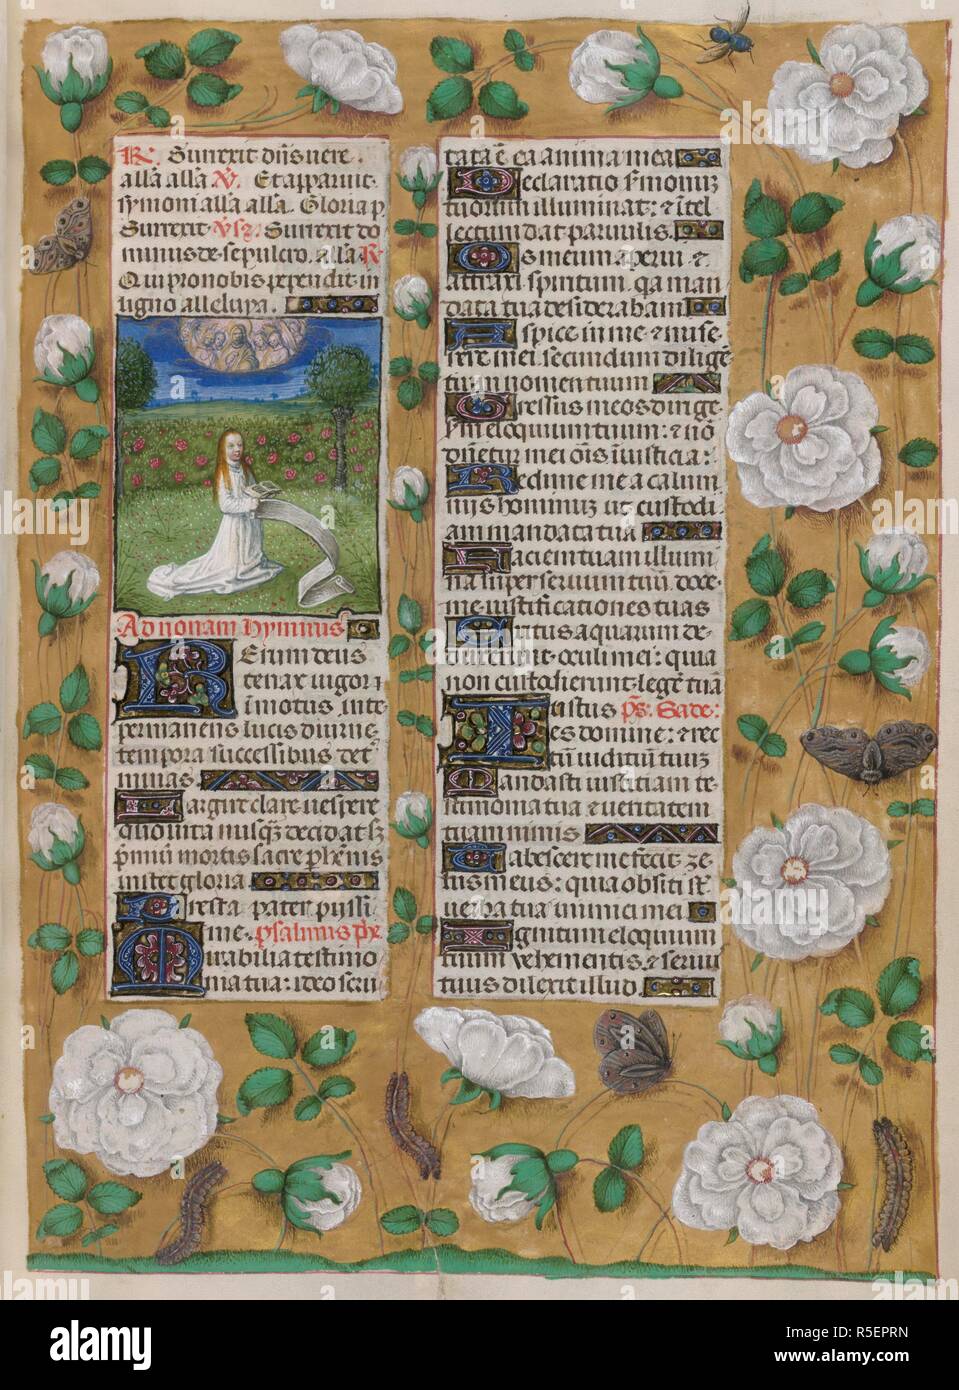 R. Surrexit dn̄s vere.
alla alla V. Et apparuit
symoni alla alla. Gloria p
Surrexit Vsz. Surrexit do
minus de sepulcro. alla R
Qui pro nobis pependit in
ligno alleluya.
Ad nonam hymnus
Rerum deus
tenax vigor i
m̄motus in te
permanens lucis diurne
tempora successibus det
minas
Largire clare vespere
quo vita nusq̄ decidat sz
p̄miū mortis sacre phēnis
instet gloria.
Presta pater pyssi
me. psalmus
Mirabilia testimo
nia tua: ideo scru
tata ē ea anima mea
Declaratio s̄monū
tuorum illuminat: & ītel
lectum dat parvulis.
Os meum aperui &
attraxi spiritum. qa man
data tua desiderabam
Aspice in me & mise
rere mei. secundum diligē
tium nomen tuum
Gressus meos dirige
s̄m eloquium tuum: & nō
dn̄etur mei om̄s īiusticia:
Redime me a calum
niis hominum ut custodi
am mandata tua
Faciem tuam illumi
na super servum tuū. doce
me iustificationes tuas
Exitus aquarum de
duxerunt oculi mei: quia
non custodierunt legē tuā
Iustus ps. Sade:
es domine: & rec
tū iudiciū tuū
Mandasti iusticiam te
stimonia tua & veritatem
tuam nimis
Tabescere me fecit ze
lus meus: quia obliti sūt
verba tua inimici mei
Ignitum eloquium
tuum vehementis & servu
tuus dilexit illud.
alamy
Image ID: R5EPRN
www.alamy.com